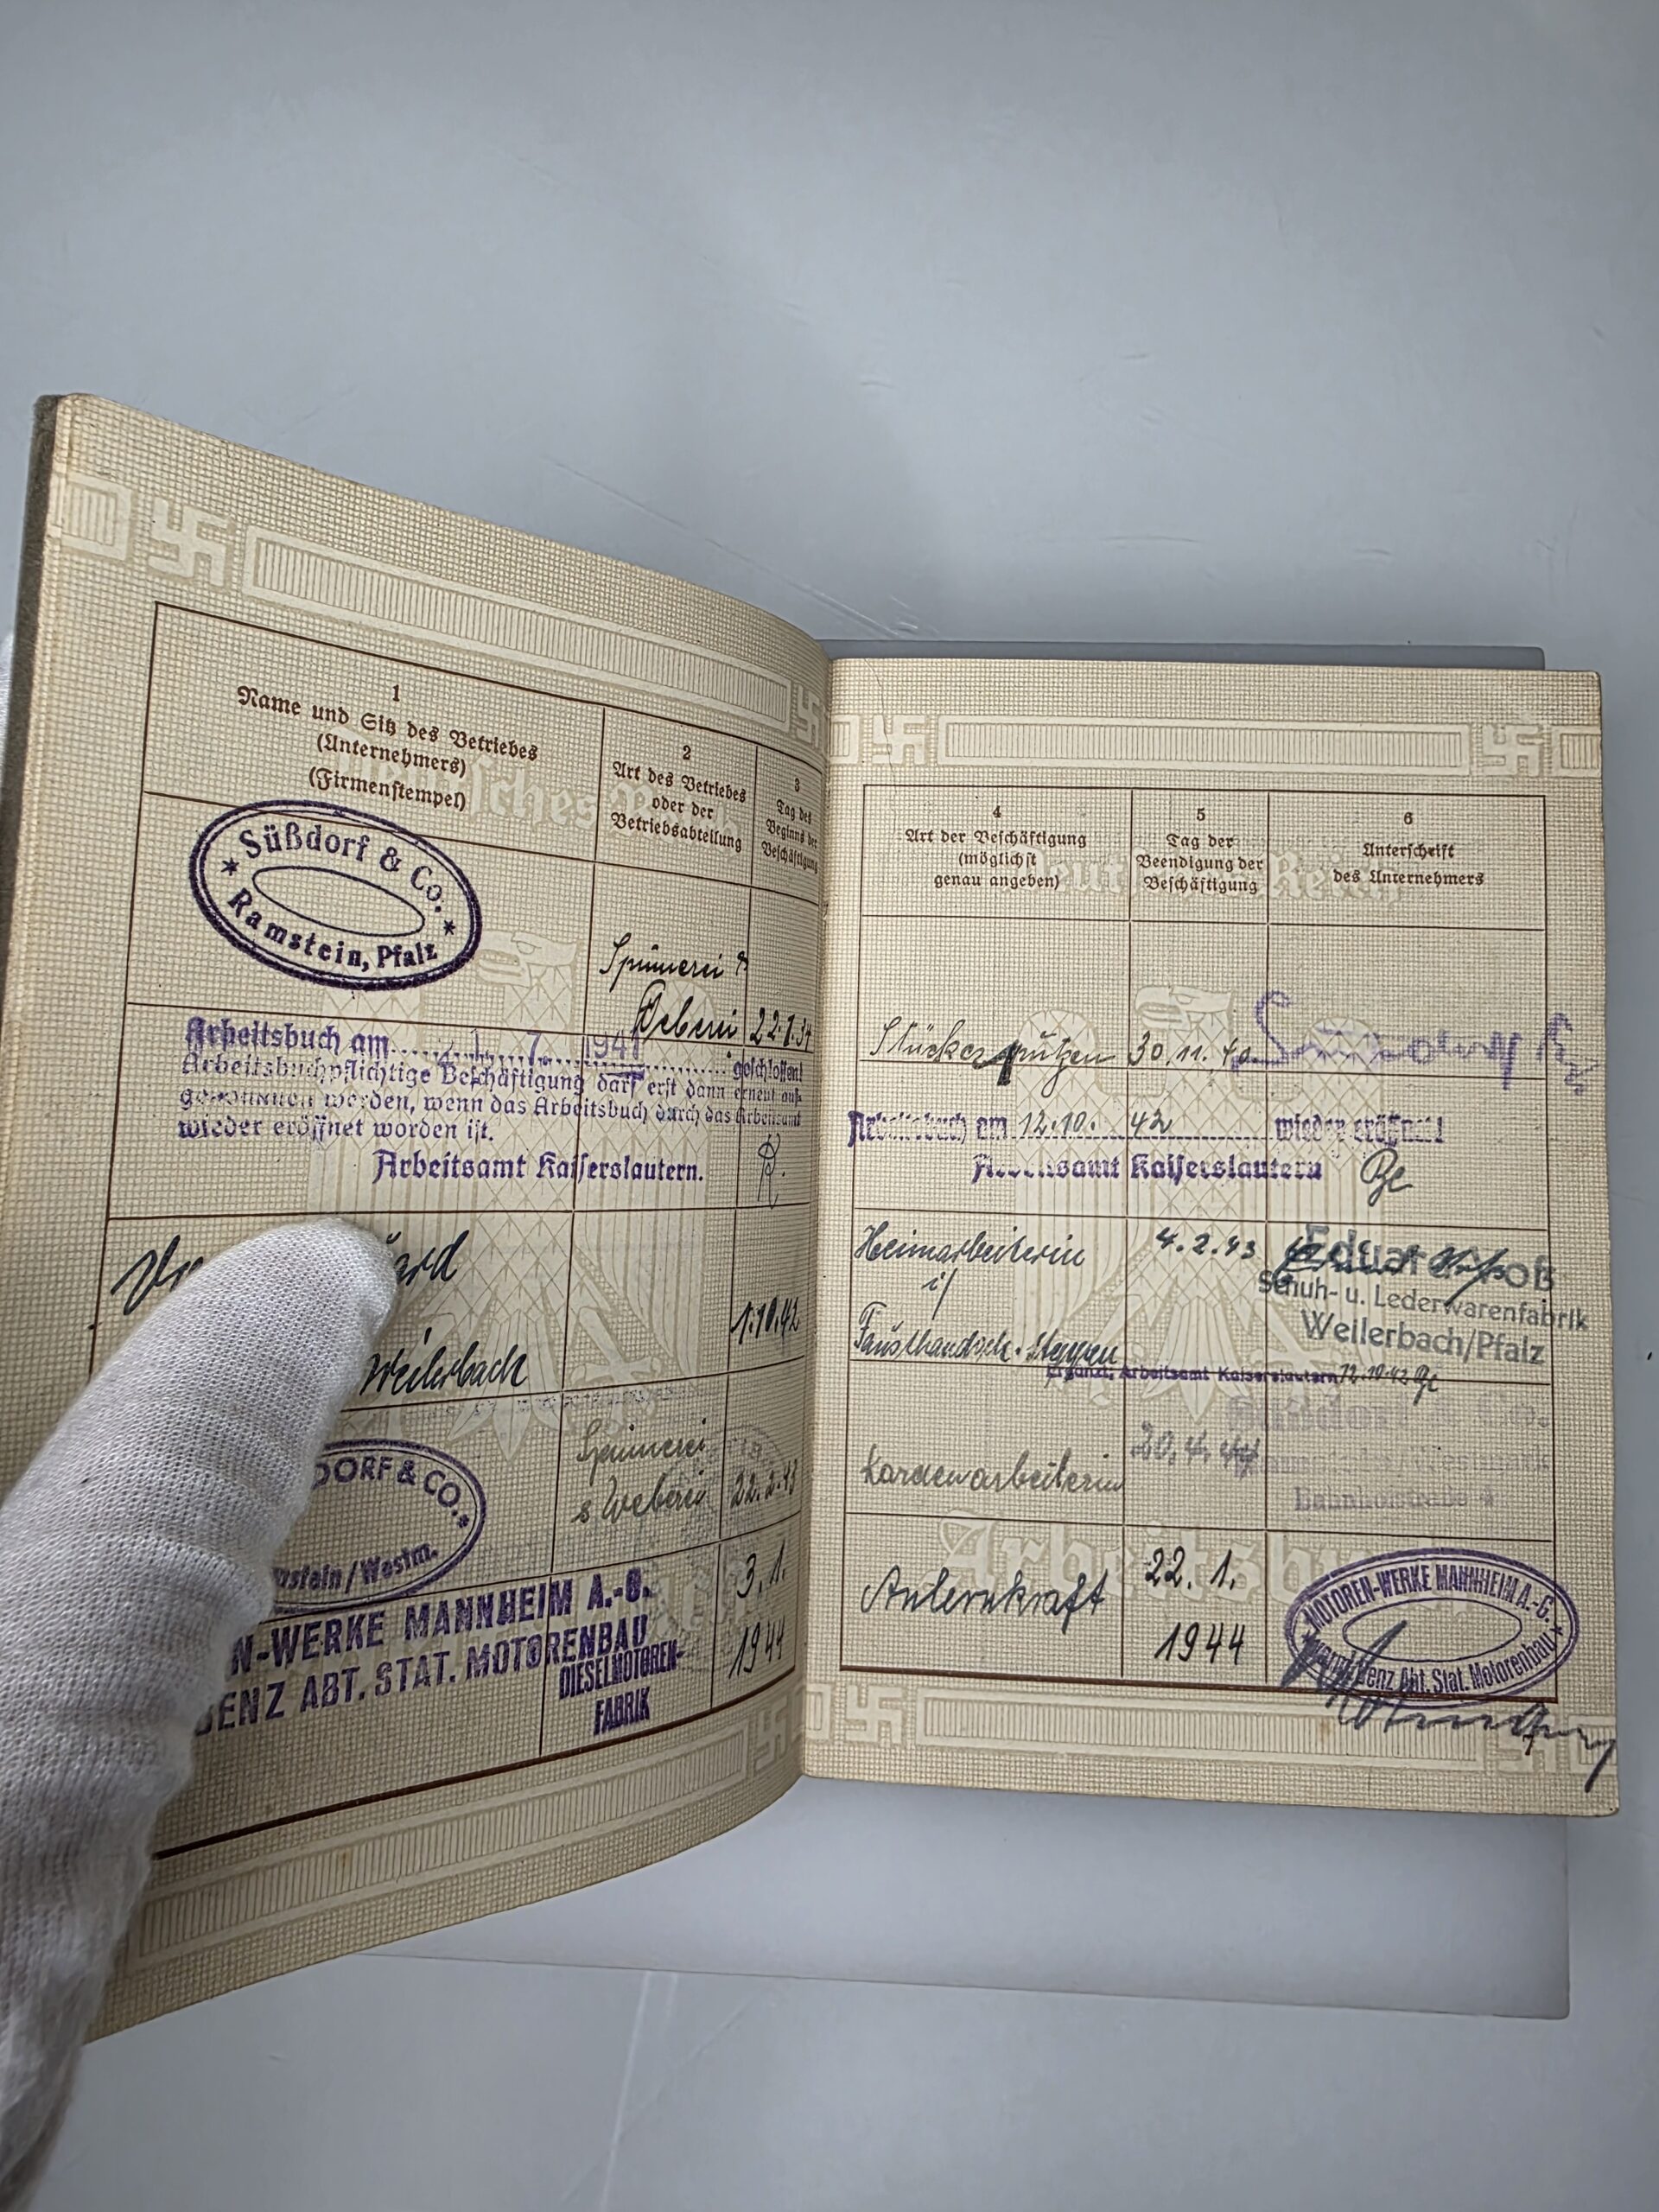 1
Name und Sitz des Betriebes
(Unternehmers)
(Firmenstempel)
2
Art des Betriebes
oder der
Betriebsabteilung
3
Tag des
Beginns der
Beschäftigung
Süßdorf & Co.
Ramstein, Pfalz
Spinnerei
Weberei
Arbeitsbuch am 7. 1941 geschlossen!
Arbeitsbuchpflichtige Beschäftigung darf erst dann erneut auf-
genommen werden, wenn das Arbeitsbuch durch das Arbeitsamt
wieder eröffnet worden ist.
Arbeitsamt Kaiserslautern.
Weilerbach
1.10.42
DORF & CO.
stein/Westm.
Spinnerei
Weberei
22.2.43
N-WERKE MANNHEIM A.-G.
BENZ ABT. STAT. MOTORENBAU
DIESELMOTOREN-
FABRIK
3.1.
1944
4
Art der Beschäftigung
(möglichst
genau angeben)
5
Tag der
Beendigung der
Beschäftigung
6
Unterschrift
des Unternehmers
Stückeputzen 30.11.40
Arbeitsbuch am 12.10. 42 wieder eröffnet!
Arbeitsamt Kaiserslautern
Heimarbeiterin
i/
4.2.43
Eduard Voß
Schuh- u. Lederwarenfabrik
Weilerbach/Pfalz
Ergänzt, Arbeitsamt Kaiserslautern 12.10.42
Kardenarbeiterin
20.4.44
Süßdorf & Co.
Bahnhofstraße 4
Anlernkraft
22.1.
1944
MOTOREN-WERKE MANNHEIM A.-G.
vorm. Benz Abt. Stat. Motorenbau
Deutsches Reich
Arbeitsbuch